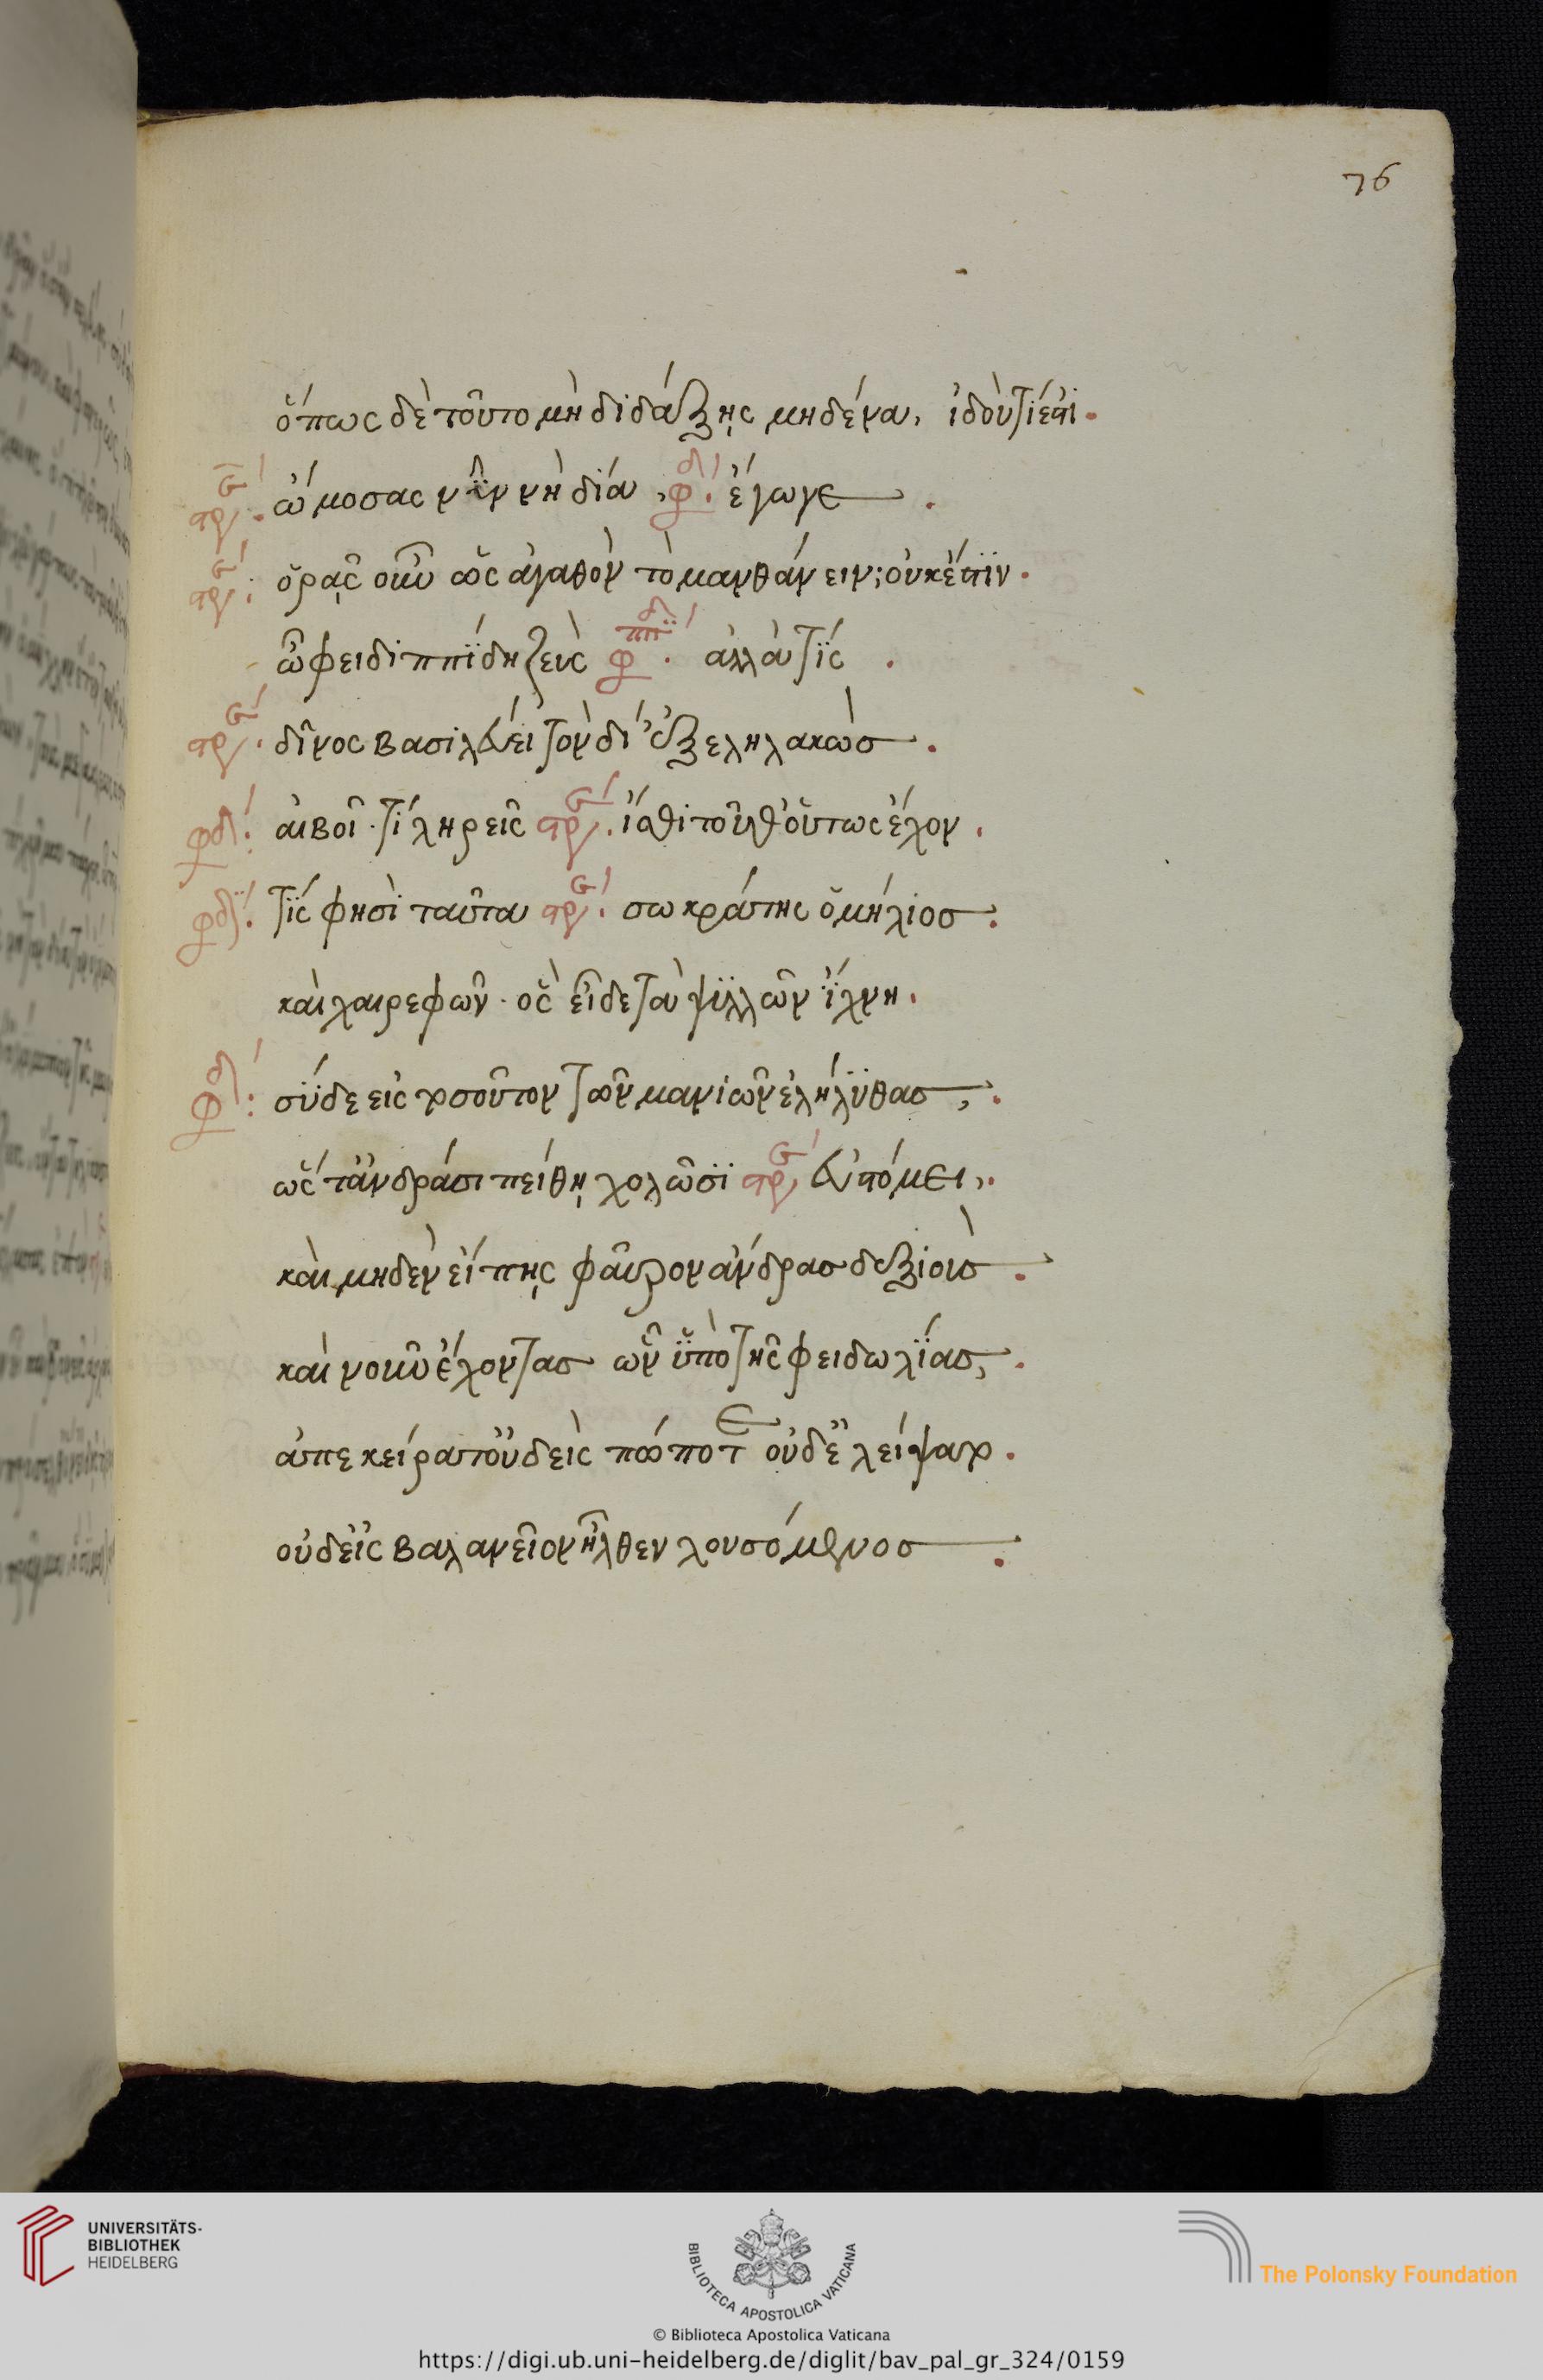 76
ὅπως δὲ τοῦτο μὴ διδάξῃς μηδένα, ἰδοὺ τί ἐστι.
στρ. ὤμοσας νῦν νὴ δία, φδ. ἔγωγε.
στρ. ὁρᾷς οὖν ὡς ἀγαθὸν τὸ μανθάνειν; οὐκ ἔστϊν.
ὦ φειδιππίδη ζεὺς φ. ἀλλὰ τίς.
στρ. δῖνος βασιλεύει τὸν δί' ἐξεληλακώσ.
φδ. αἰβοῖ· τί ληρεῖς στρ. ἴσθι τοῦθ' οὕτως ἔχον.
φδ. τίς φησὶ ταῦτα στρ. σωκράτης ὁ μήλιοσ.
καὶ χαιρεφῶν· ὃς εἶδε τὰ ψϋλλῶν ἴχνη.
φδ. σὺ δε εἰς τοσοῦτον τῶν μανιῶν ἐλήλϋθασ,.
ὥς τ' ἀνδράσι πείθῃ χολῶσϊ στρ. εὐστόμει,.
καὶ μηδὲν εἴπῃς φαῦλον ἄνδρασ δεξιοὺσ.
καὶ νοῦν ἔχοντασ ὧν ὑπὸ τῆς φειδωλίασ,.
ἀπεκείρατ' οὐδεὶς πώποτε οὐδ' ἐλείψατο.
οὐδ' εἰς βαλανεῖον ἦλθεν λουσόμενοσ.
UNIVERSITÄTS-
BIBLIOTHEK
HEIDELBERG
BIBLIOTECA APOSTOLICA VATICANA
The Polonsky Foundation
© Biblioteca Apostolica Vaticana
https://digi.ub.uni-heidelberg.de/diglit/bav_pal_gr_324/0159